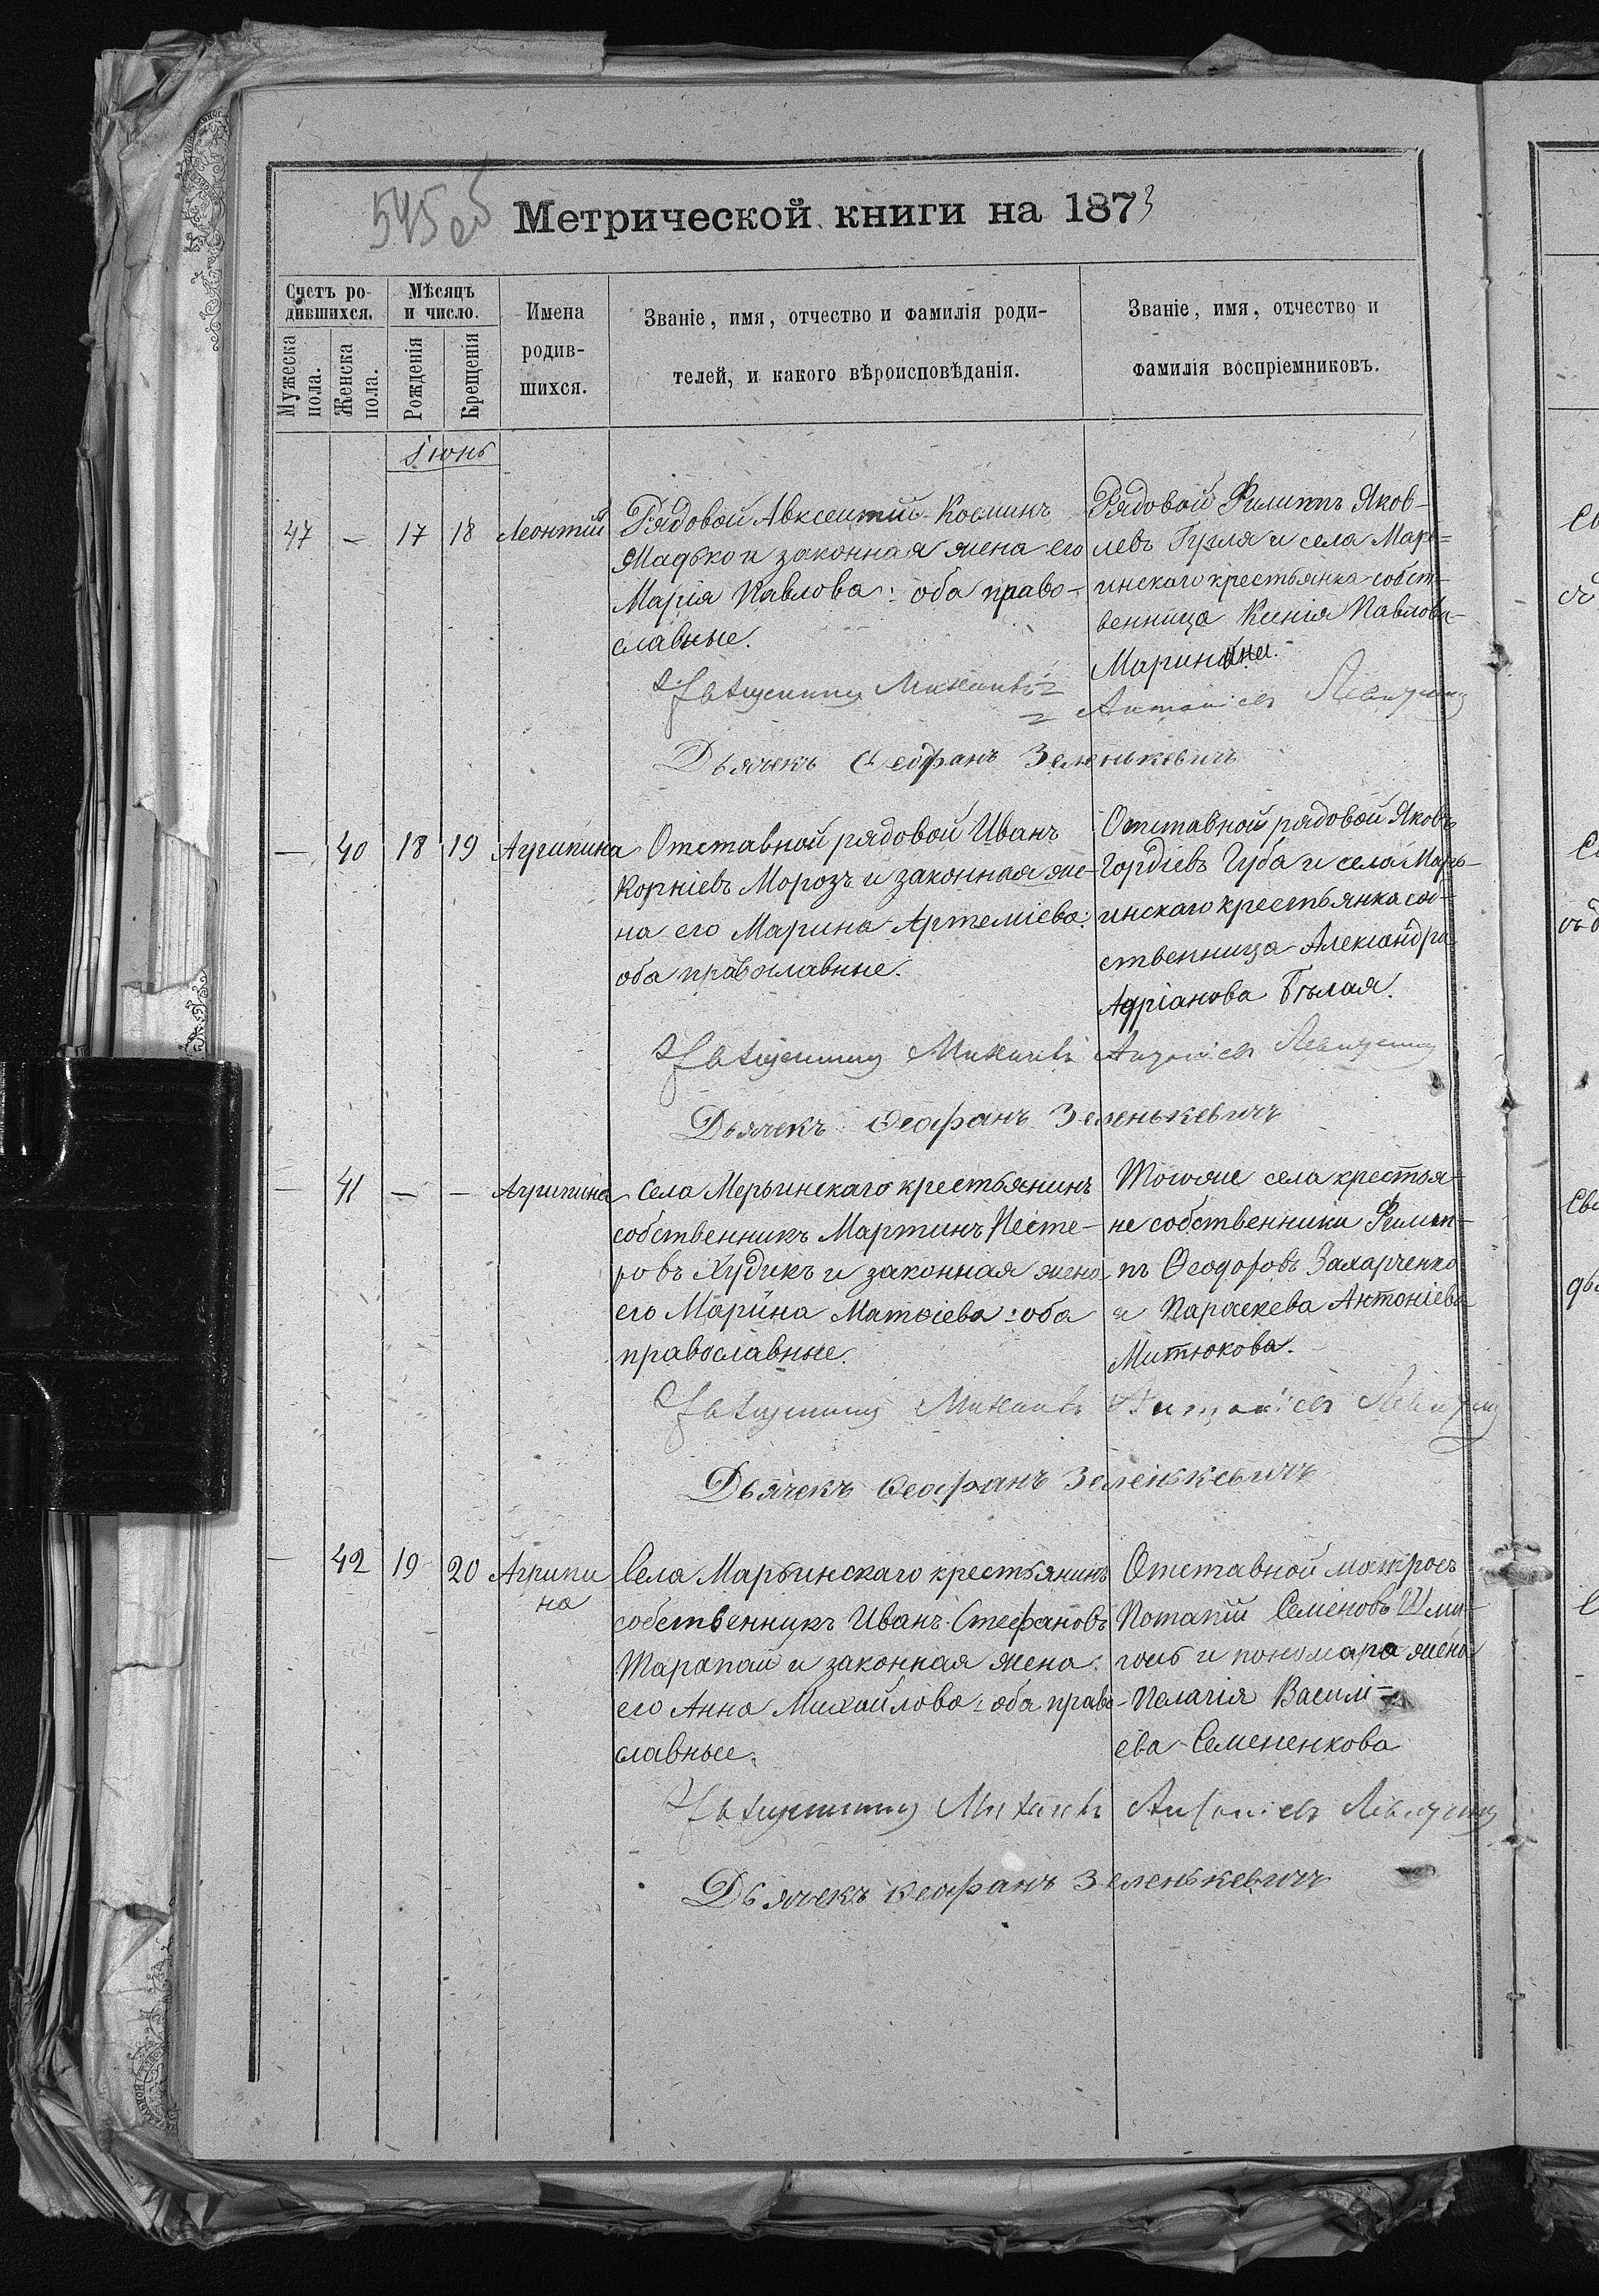 545 об
Метрической книги на 1873
Счетъ ро-
дившихся.
Мужеска
пола.
Женска
пола.
Мѣсяцъ
и число.
Рожденія
Крещенія
Имена
родив-
шихся.
Званіе, имя, отчество и фамилія роди-
телей, и какого вѣроисповѣданія.
Званіе, имя, отчество и
фамилія воспріемниковъ.
Іюнь
47 — 17 18 Леонтій
Рядовой Авксентій Косминъ
Мадько и законная жена его
Марія Павлова: оба право-
славные.
Рядовой Филиппъ Яков-
левъ и села Марь-
инскаго крестьянка собст-
венница Ксенія Павлова
Священникъ Михаилъ
Антоніевъ
Дьячекъ Ѳеофанъ Зеленькевичъ
— 40 18 19 Агрипина
Отставной рядовой Иванъ
Корніевъ Морозъ и законная же-
на его Марина Артеміева:
оба православные.
Отставной рядовой Яковъ
Гордіевъ Губа и села Марь-
инскаго крестьянка соб-
ственница Александра
Адріанова Бѣлая.
Священникъ Михаилъ Антоніевъ
Дьячекъ Ѳеофанъ Зеленькевичъ
— 41 — — Агрипина
Села Мерьинскаго крестьянинъ
собственникъ Мартинъ Несте-
ровъ Худикъ и законная жена
его Марина Матѳіева: оба
православные.
Тогоже села крестья-
не собственники Филип-
пъ Ѳеодоровъ Захарченко
и Параскева Антоніева
Митюкова.
Священникъ Михаилъ Антоніевъ
Дьячекъ Ѳеофанъ Зеленькевичъ
— 42 19 20 Агрипи
на
Села Марьинскаго крестьянинъ
собственникъ Иванъ Стефановъ
Тарапай и законная жена
его Анна Михайлова: оба право-
славные.
Отставной матросъ
Потапій Семеновъ Шми-
голь и пономаря жена
Пелагія Василі-
ева Семененкова
Священникъ Михаилъ Антоніевъ
Дьячекъ Ѳеофанъ Зеленькевичъ